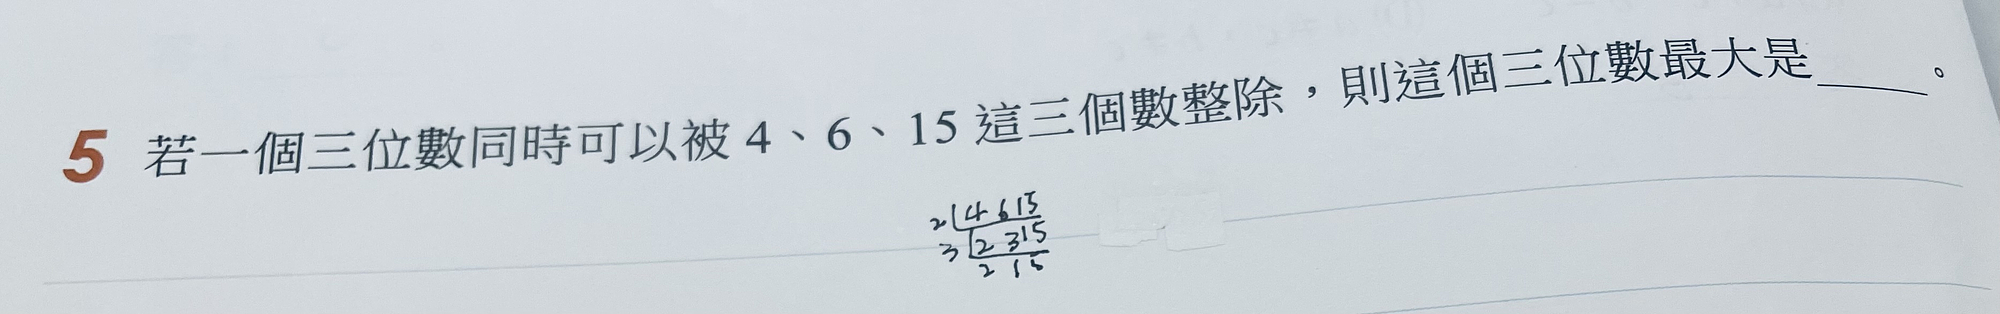 5 若一個三位數同時可以被 4、6、15 這三個數整除，則這個三位數最大是____。
2 4 6 15
3 2 3 15
2 1 5